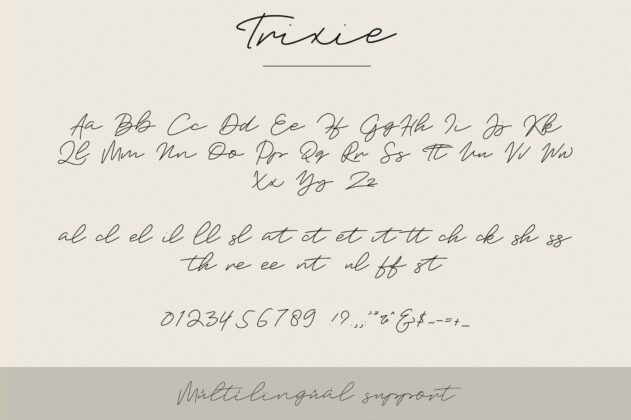 Trixie
Aa Bb Cc Dd Ee Ff Gg Hh Ii Jj Kk
Ll Mm Nn Oo Pp Qq Rr Ss Tt Uu Vv Ww
Xx Yy Zz
al cl el il ll sl at ct et it tt ch ck sh ss
th re ee nt nl ff st
0123456789 !?.,;:"“”%*&$~-=+_
Múltilingüàl support